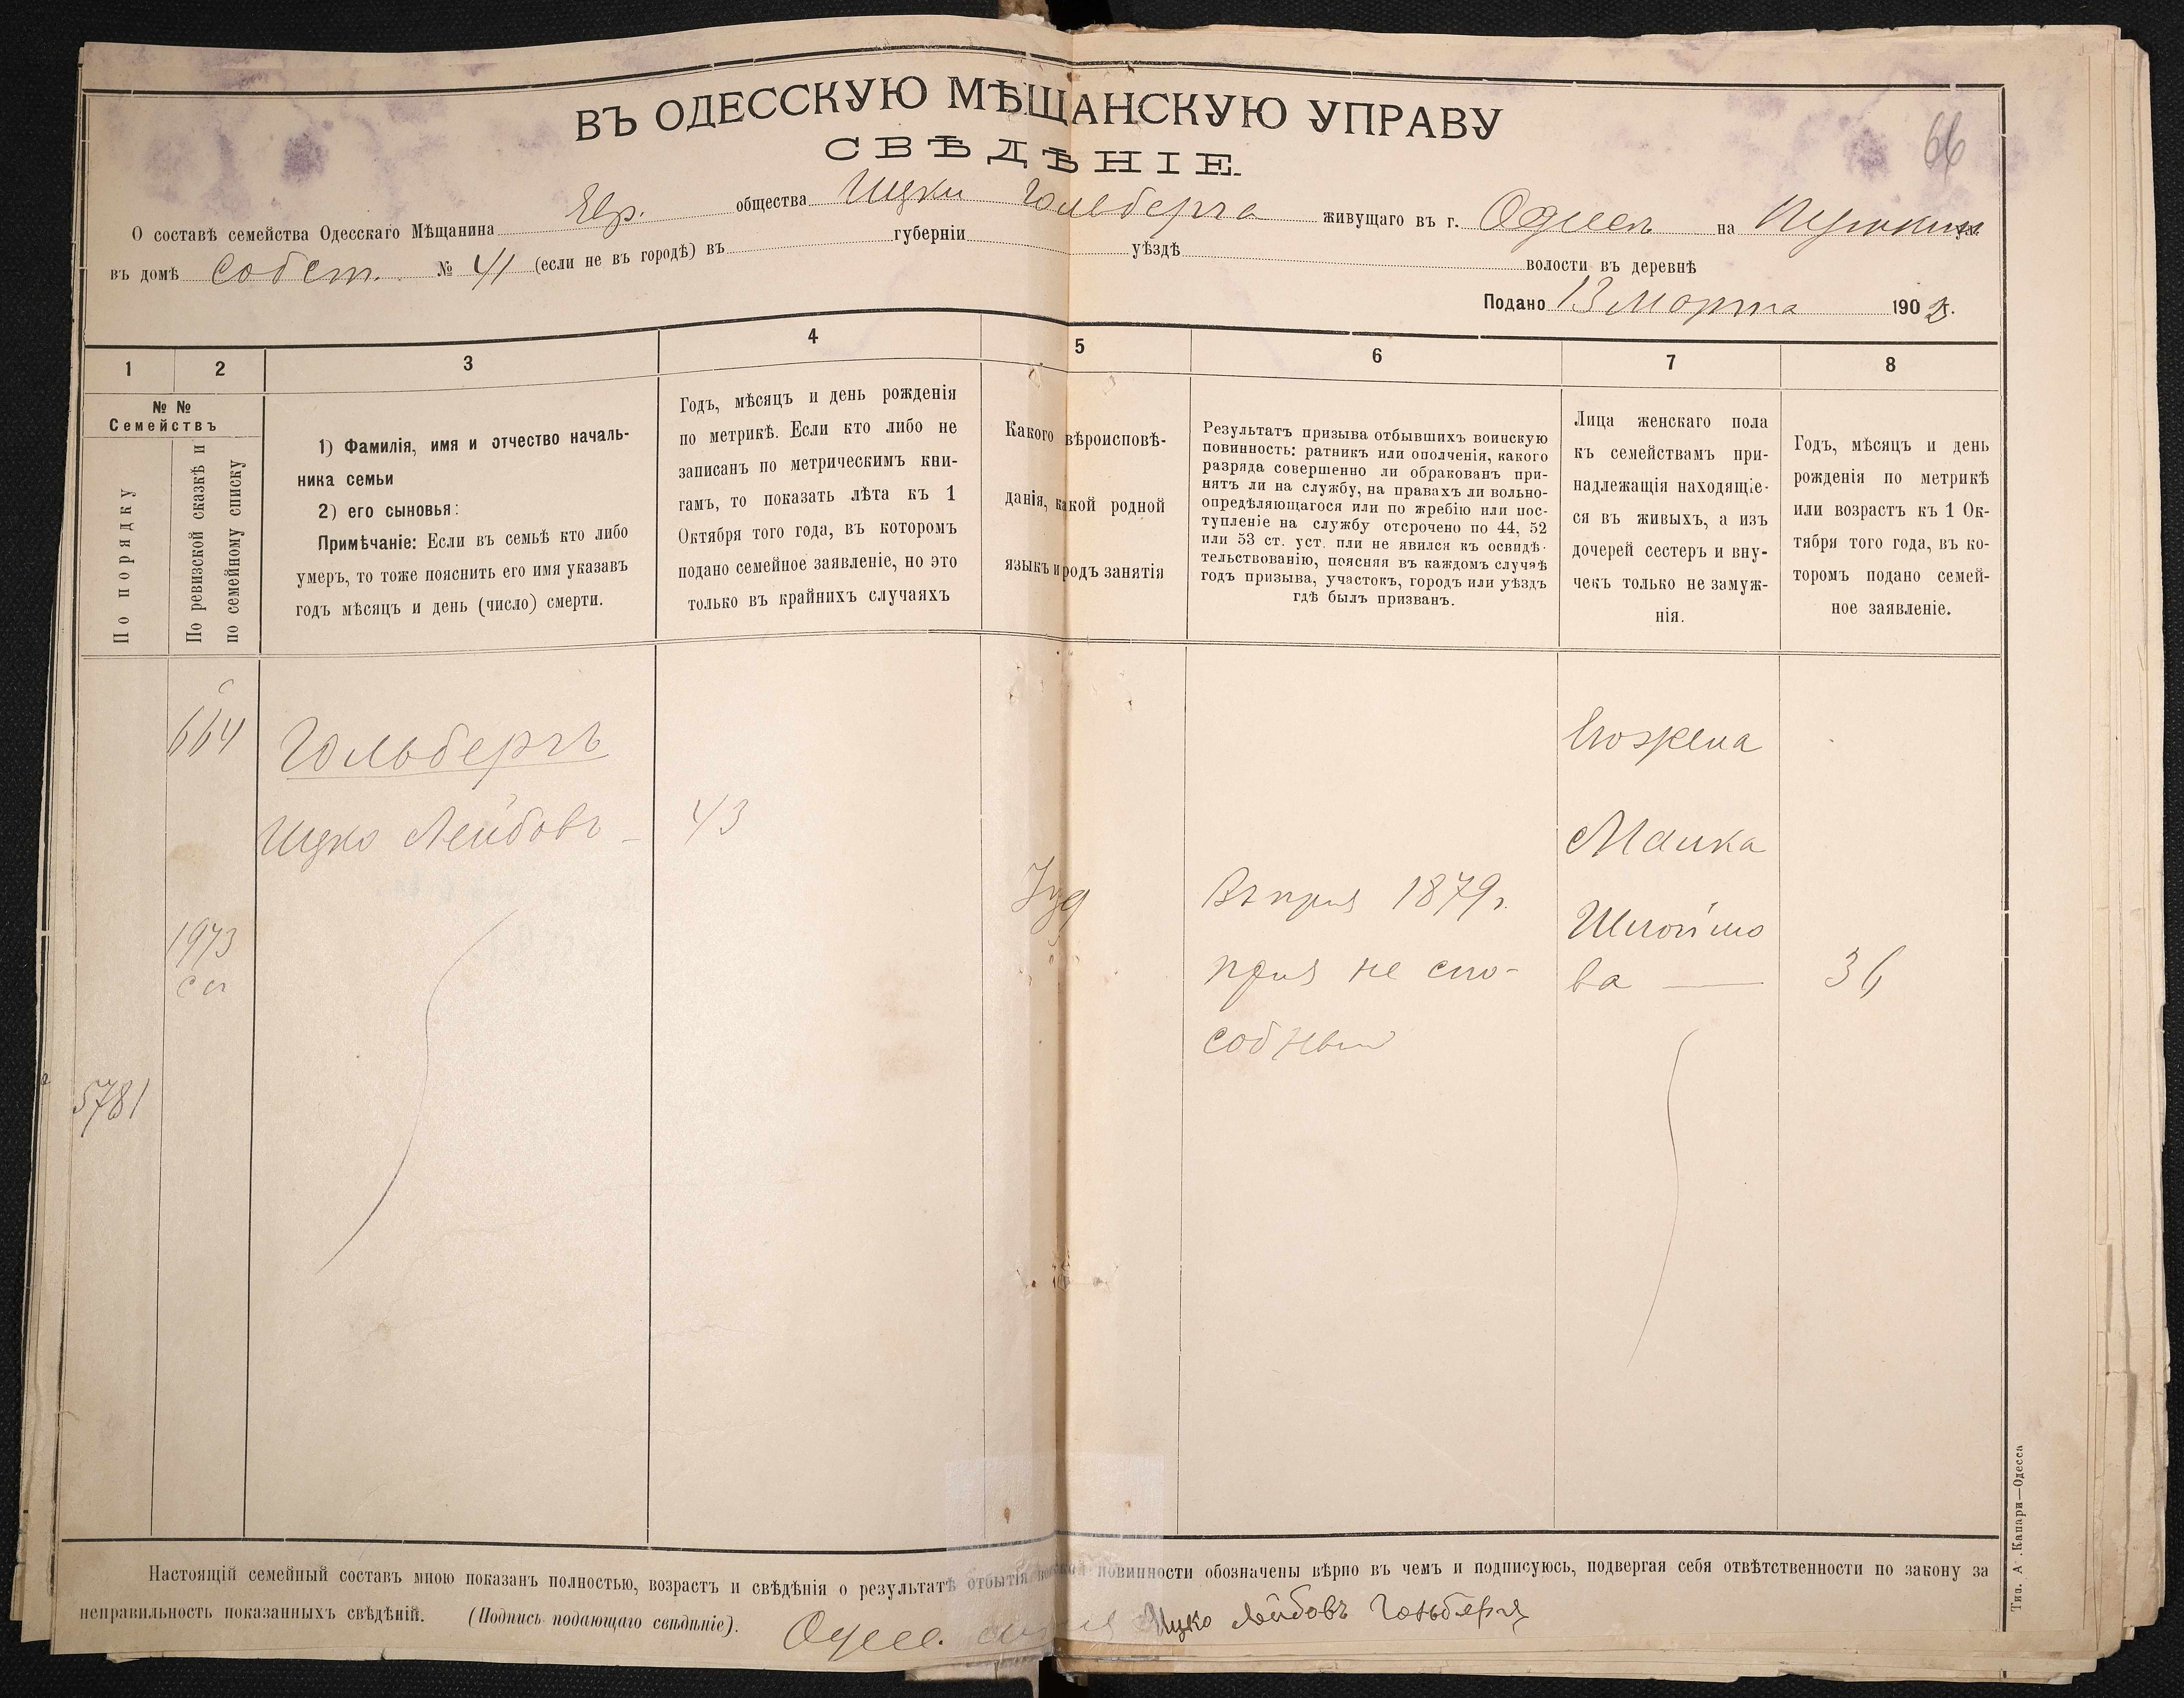 ВЪ ОДЕССКУЮ МѢЩАНСКУЮ УПРАВУ
66
СВѢДѢНІЕ.
О составѣ семейства Одесскаго Мѣщанина Евр. общества Ицки Гольберга живущаго въ г. Одессѣ на Пушкин ул.
въ домѣ собст. № 41 (если не въ городѣ) въ губерніи уѣздѣ волости въ деревнѣ
Подано 13 Марта 190 г.
1 2 3 4 5 6 7 8
№ №
Семействъ
По порядку
По ревизской сказкѣ и
по семейному списку
1) Фамилія, имя и отчество началь-
ника семьи
2) его сыновья:
Примѣчаніе: Если въ семьѣ кто либо
умеръ, то тоже пояснить его имя указавъ
годъ мѣсяцъ и день (число) смерти.
Годъ, мѣсяцъ и день рожденія
по метрикѣ. Если кто либо не
записанъ по метрическимъ кни-
гамъ, то показать лѣта къ 1
Октября того года, въ котором
подано семейное заявленіе, но это
только въ крайнихъ случаяхъ
Какого вѣроисповѣ-
данія, какой родной
языкъ и родъ занятія
Результатъ призыва отбывшихъ воинскую
повинность: ратникъ или ополченія, какого
разряда совершенно ли обракованъ при-
нятъ ли на службу, на правахъ ли вольно-
опредѣляющагося или по жребію или пос-
тупленіе на службу отсрочено по 44, 52
или 53 ст. уст. или не явился къ освидѣ-
тельствованію, поясняя въ каждомъ случаѣ
годъ призыва, участокъ, городъ или уѣздъ
гдѣ былъ призванъ.
Лица женскаго пола
къ семействамъ при-
надлежащія находящіе-
ся въ живыхъ, а изъ
дочерей сестеръ и вну-
чекъ только не замуж-
нія.
Годъ, мѣсяцъ и день
рожденія по метрикѣ
или возрастъ къ 1 Ок-
тября того года, въ ко-
торомъ подано семей-
ное заявленіе.
664
Гольбергъ
Ицко Лейбовъ —
43
1973
сп
5781
Іуд
Въ приз 1879 г.
приз не спо-
собный
Его жена
Малка
Шлоймо
ва —
36
Настоящій семейный составъ мною показанъ полностью, возрастъ и свѣдѣнія о результатѣ отбытія воинской повинности обозначены вѣрно въ чемъ и подписуюсь, подвергая себя отвѣтственности по закону за
неправильность показанныхъ свѣдѣній. (Подпись подающаго свѣдѣніе). Одесс. Ицко Лейбовъ Гольберг
Тип. А. Капари—Одесса